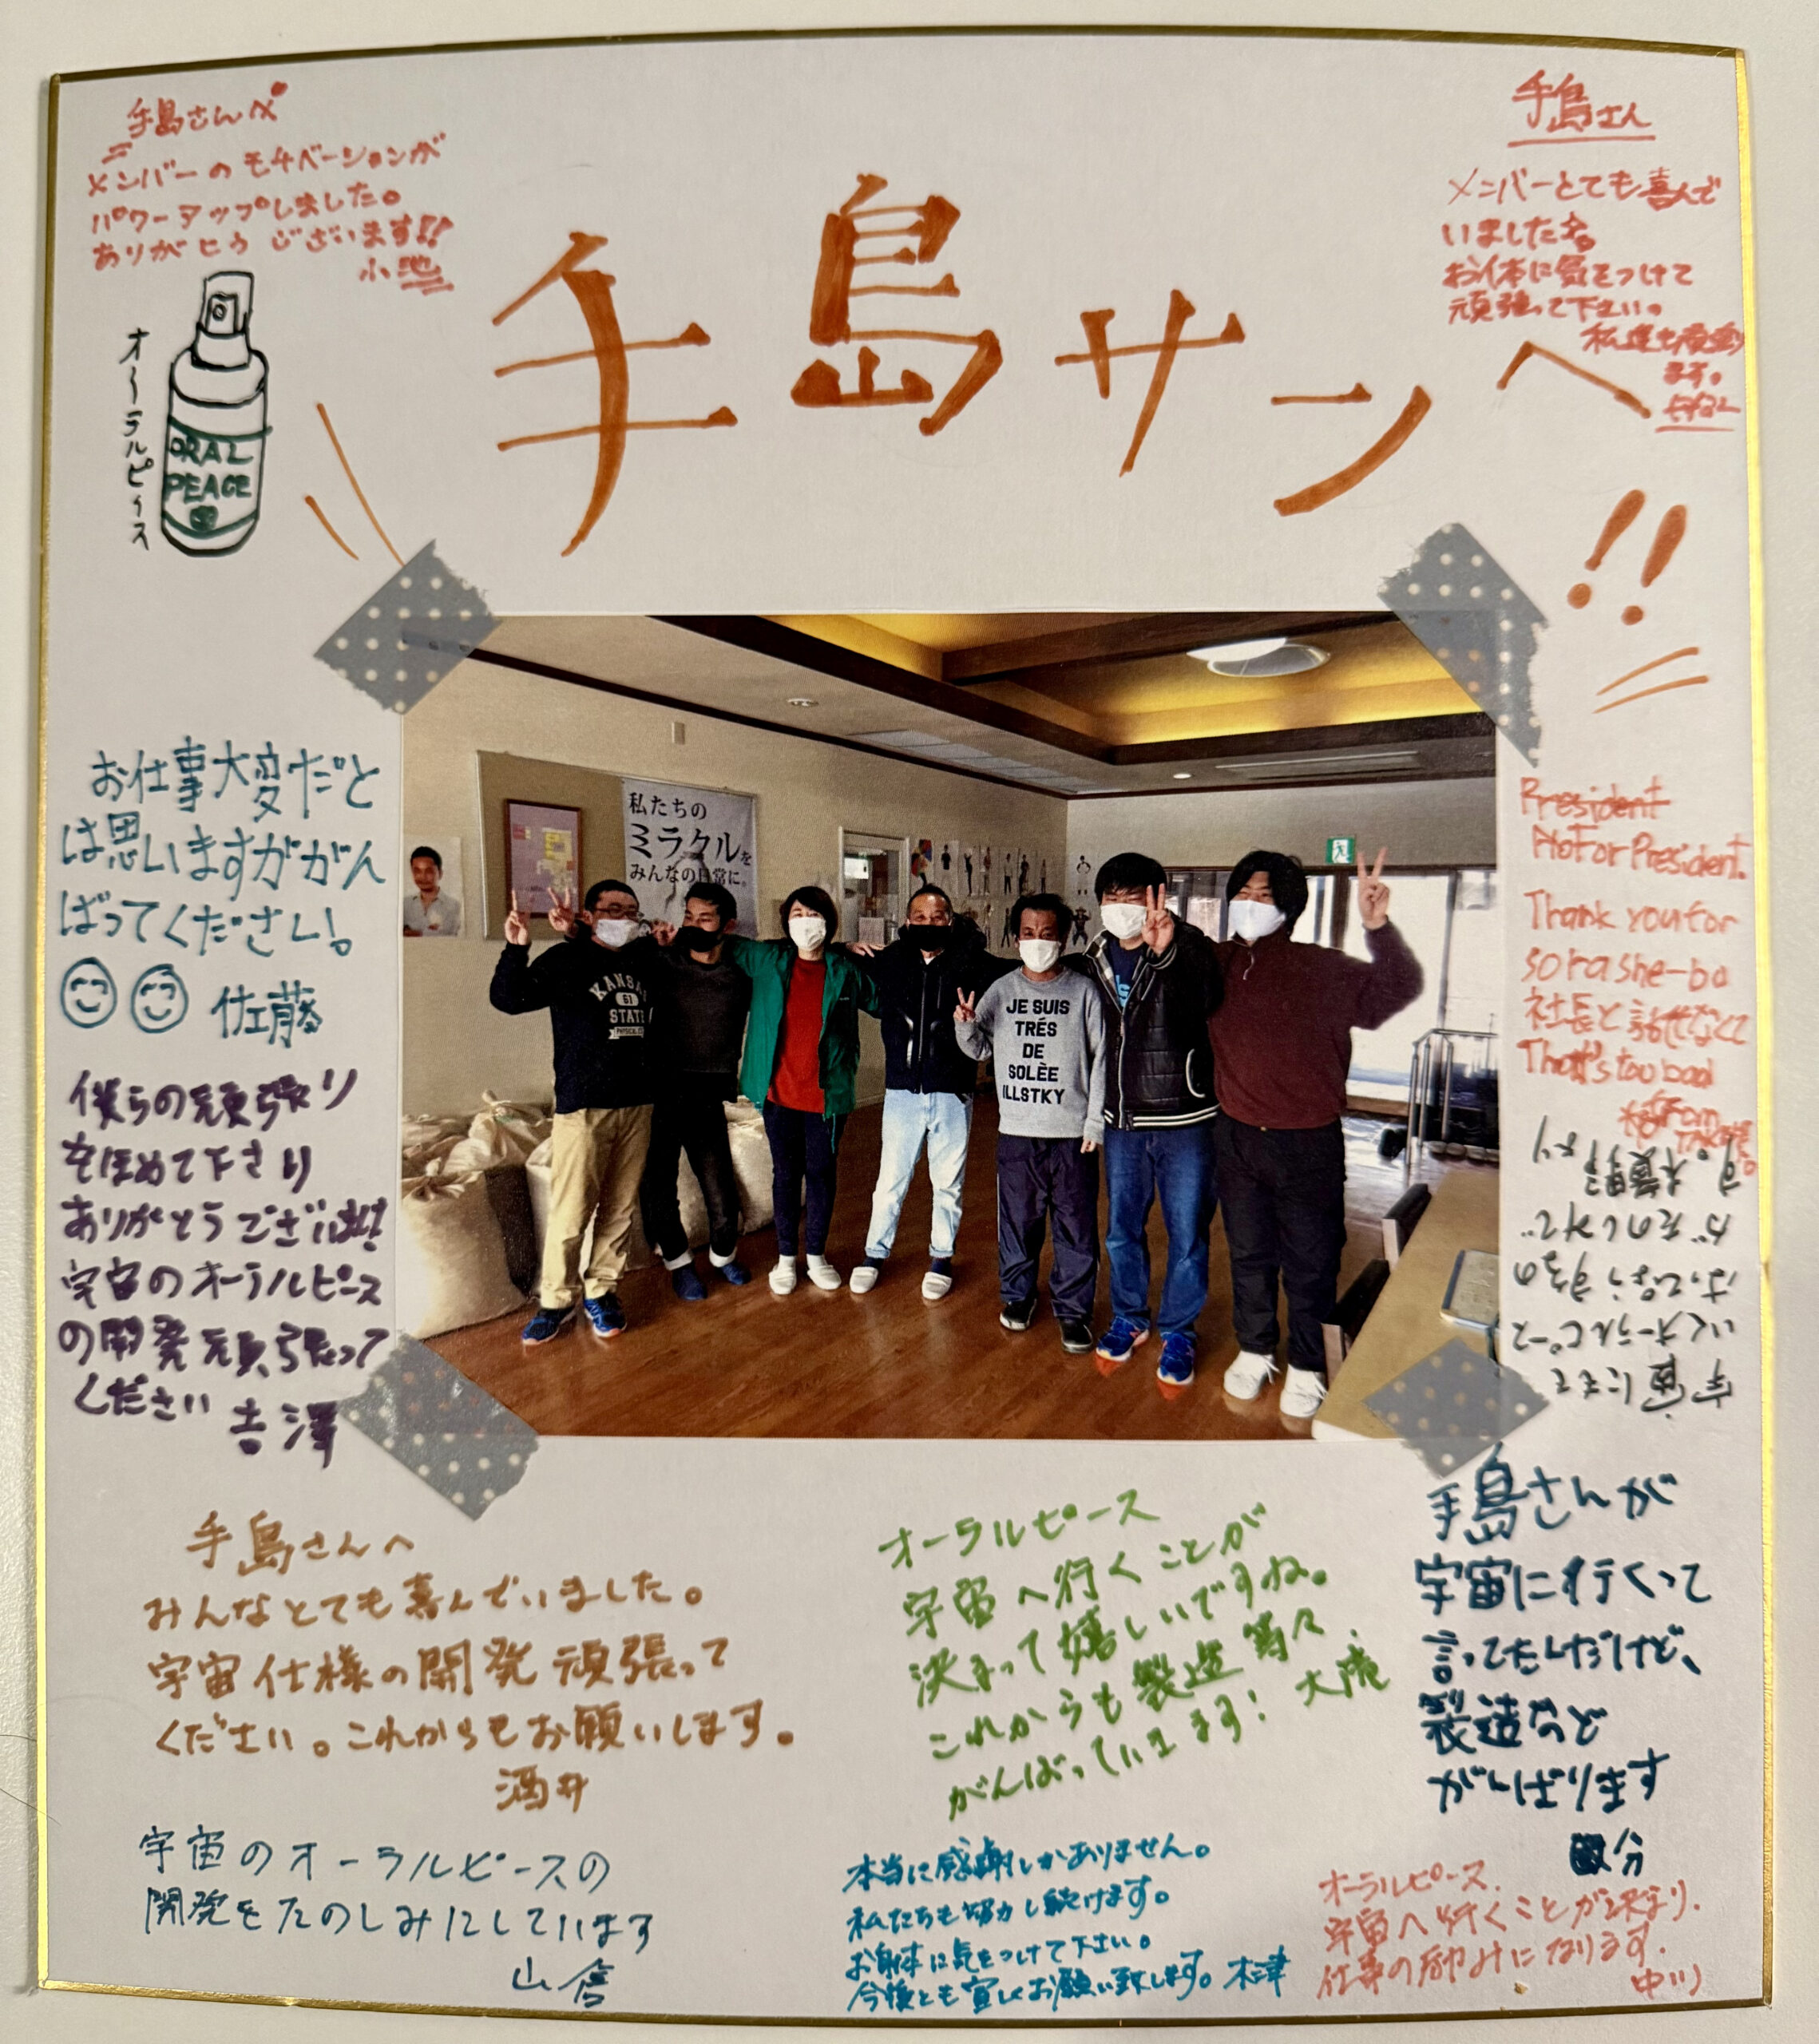 手島さんへ
メンバーのモチベーションが
パワーアップしました。
ありがとうございます!!
小池
オーラルピィス
ORAL
PEACE
手島サンへ!!
手島さん
メンバーとても喜んで
いました
お体に気をつけて
頑張って下さい。
私達も頑張り
ます。
お仕事大変だと
は思いますががん
ばってください!
佐藤
僕らの頑張り
をほめて下さり
ありがとうございます!
宇宙のオーラルピース
の開発頑張って
ください 吉澤
私たちの
ミラクルを
みんなの日常に。
KANSAS
61
STATE
JE SUIS
TRÉS
DE
SOLÈE
ILLSTKY
President
President.
Thank you for
sorashe-do
社長と話せなくて
That's too bad
From
宇宙にもって
いくオーラルピース
はっぴょうするの
がたのしみで
す。
より
手島さんへ
みんなとても喜んでいました。
宇宙仕様の開発頑張って
ください。これからもお願いします。
酒井
オーラルピース
宇宙へ行くことが
決まって嬉しいですね。
これからも製造等々
がんばっていきます!
手島さんが
宇宙に行くって
言ってたんだけど、
製造など
がんばります
宇宙のオーラルピースの
開発をたのしみにしています
本当に感謝しかありません。
私たちも努力し続けます。
お身体に気をつけて下さい。
今後とも宜しくお願い致します。木津
オーラルピース、
宇宙へ行くことが決まり、
仕事の励みになります。
中川